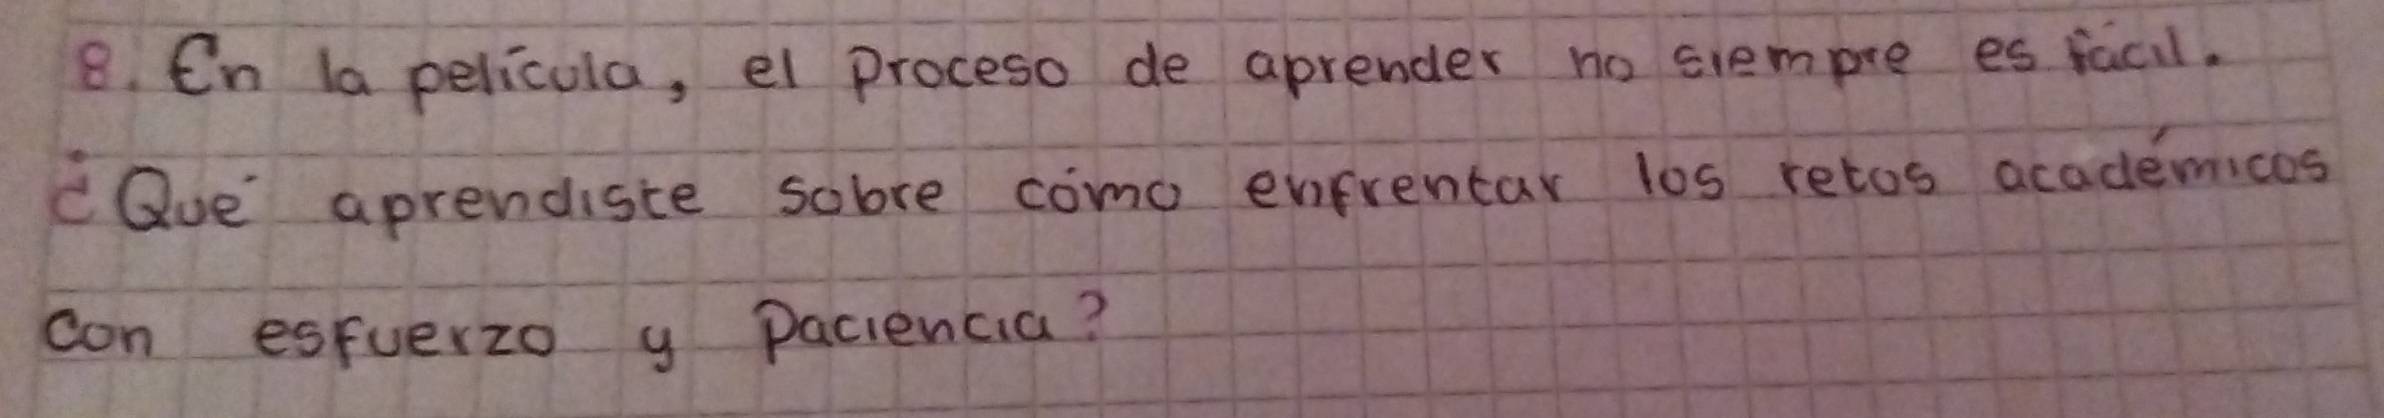 8. En la película, el proceso de aprender no siempre es fácil.
¿Qué aprendiste sobre cómo enfrentar los retos académicos
con esfuerzo y paciencia?